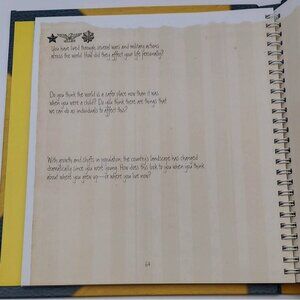 You have lived through several wars and military actions
across the world. How did they affect your life personally?
Do you think the world is a safer place now than it was
when you were a child? Do you think there are things that
we can do as individuals to affect this?
With growth and shifts in population, the country's landscape has changed
dramatically since you were young. How does this look to you when you think
about where you grew up—or where you live now?
64